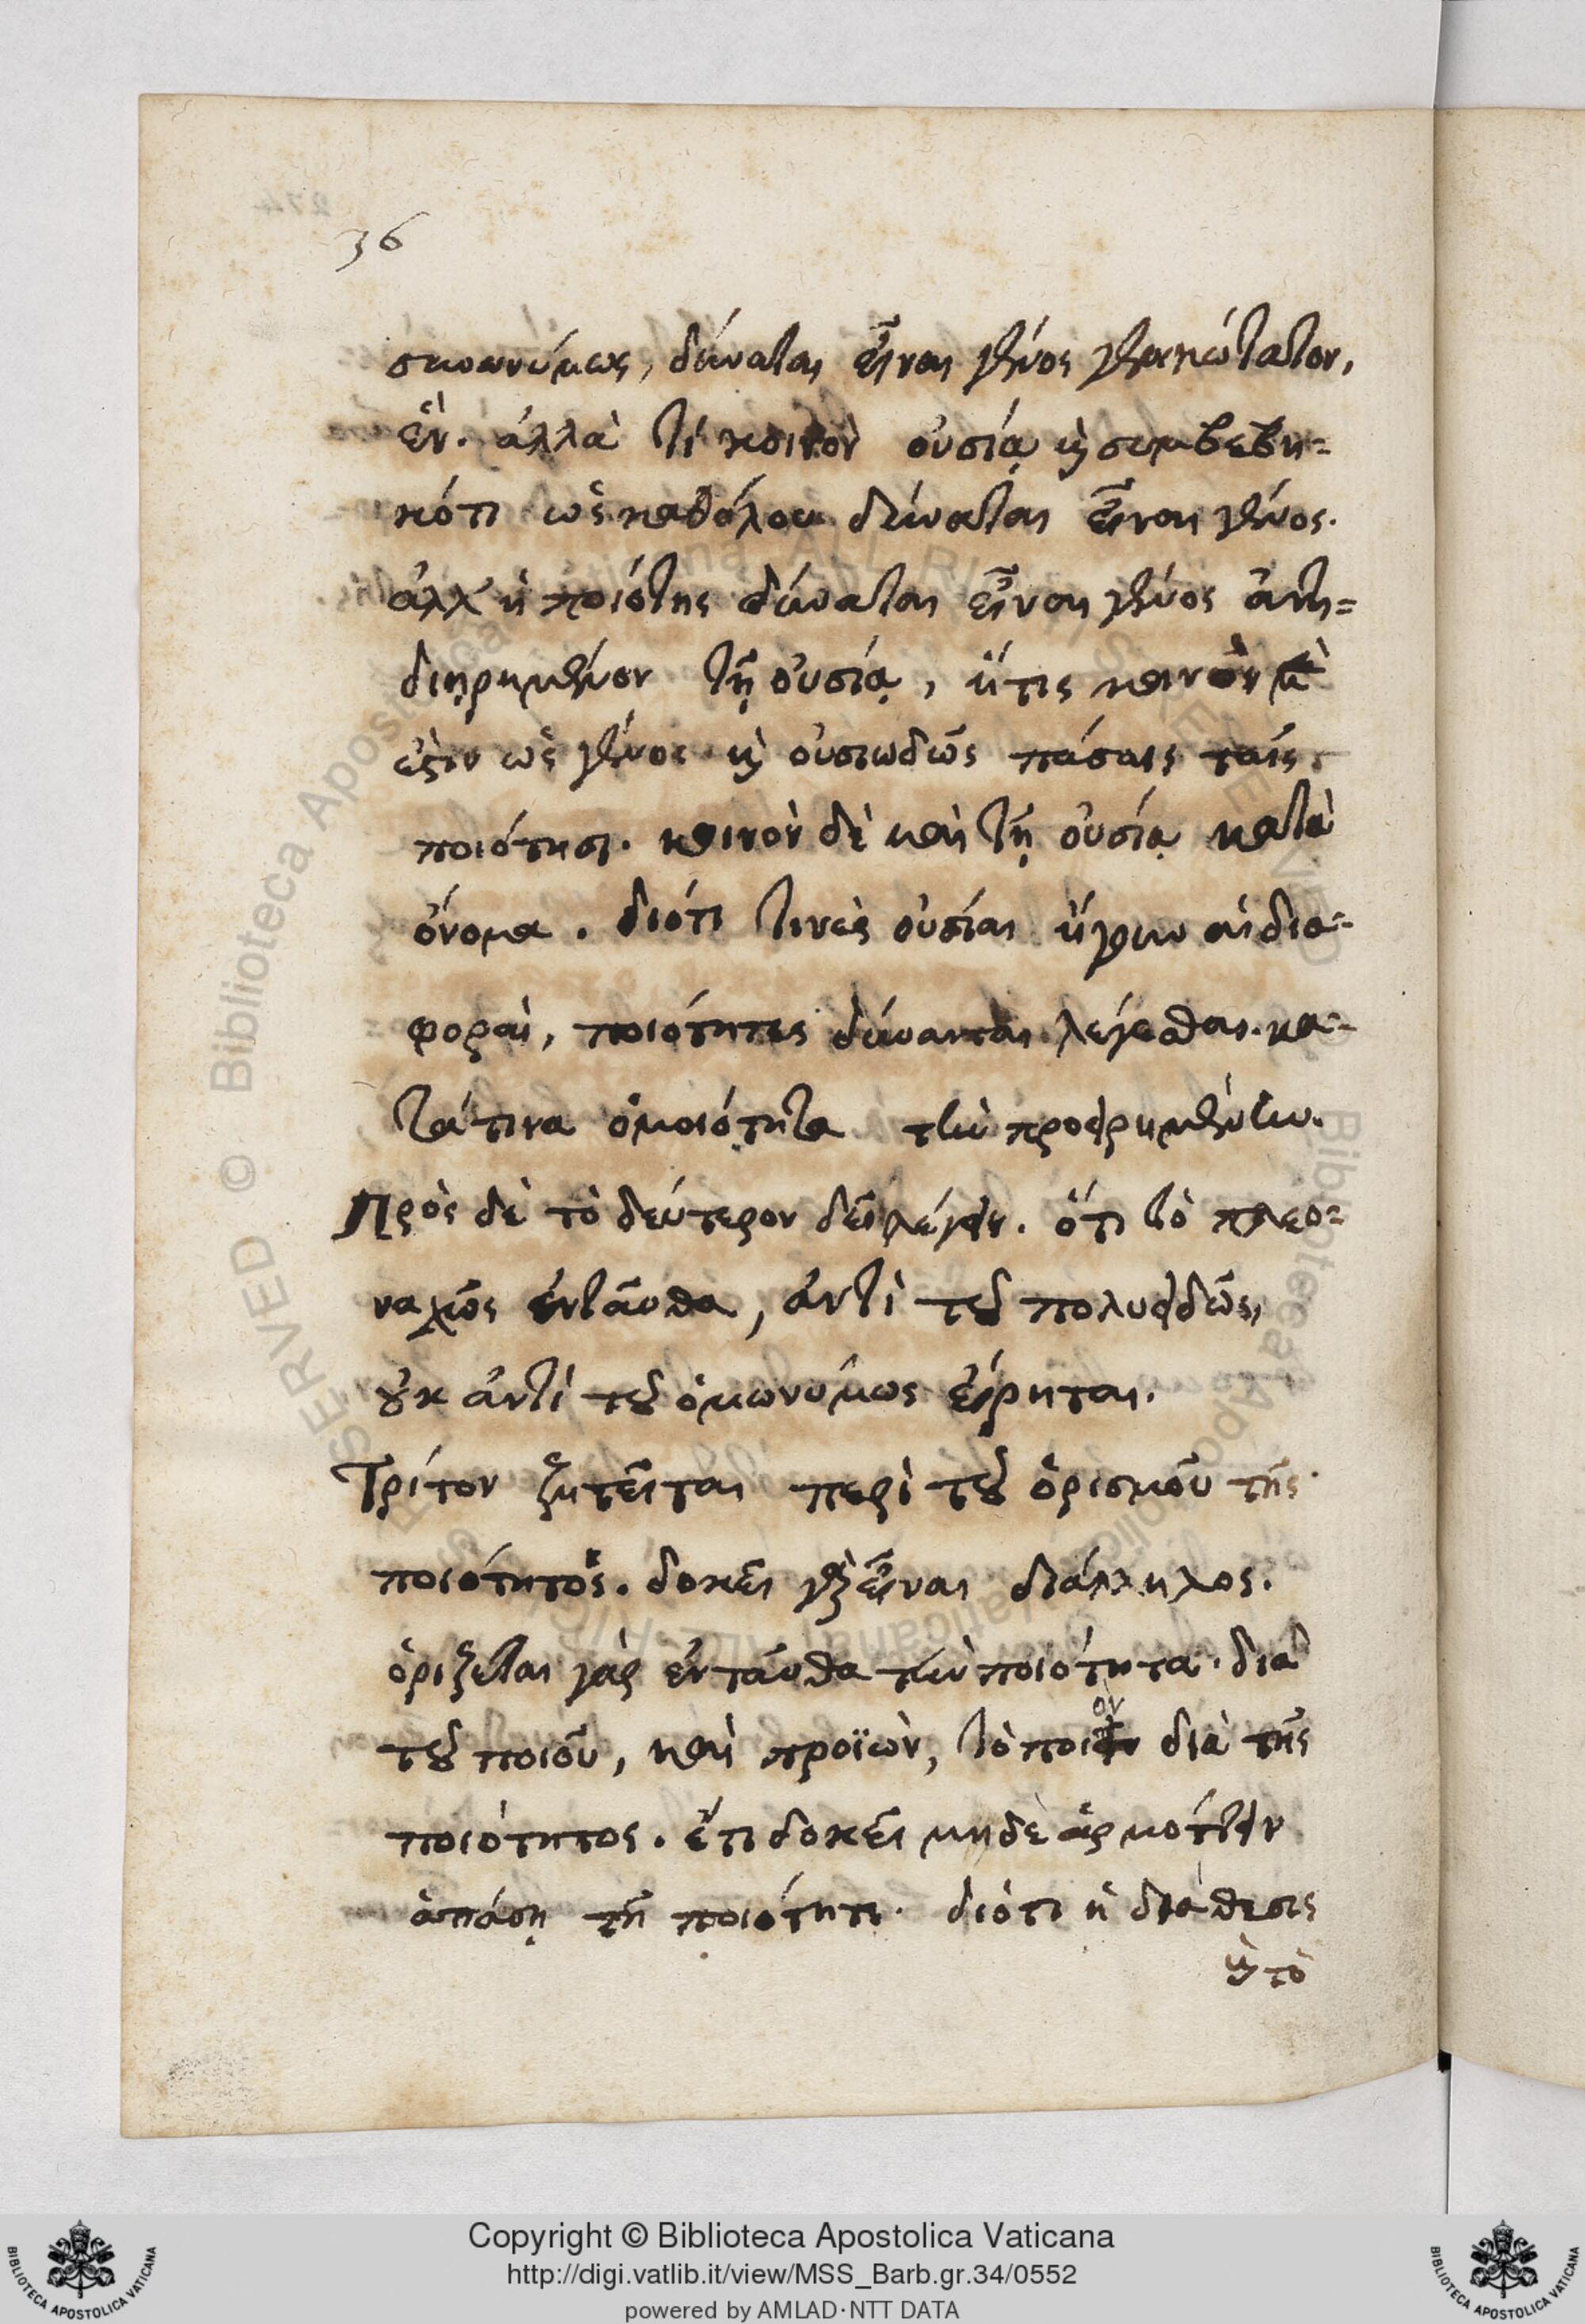 36
συνωνύμως, δύναται εἶναι γένος γενικώτατον,
ἕν. ἀλλὰ τί κοινὸν οὐσίᾳ καὶ συμβεβη=
κότι ὡς καθόλου δύναται εἶναι γένος.
ἀλλ' ἡ ποιότης δύναται εἶναι γένος ἀντι=
διῃρημένον τῇ οὐσίᾳ, ἥτις κοινὸν
ἐστιν ὡς γένος καὶ οὐσιωδῶς πάσαις ταῖς
ποιότησι. κοινὸν δὲ καὶ τῇ οὐσίᾳ κατὰ
ὄνομα. διότι τινὲς οὐσίαι ἤγουν αἱ δια=
φοραὶ, ποιότητες δύνανται λέγεσθαι. κα=
τά τινα ὁμοιότητα τὴν προειρημένην.
Πρὸς δὲ τὸ δεύτερον δεῖ λέγειν. ὅτι τὸ πλεο=
ναχῶς ἐνταῦθα, ἀντὶ τοῦ πολυειδῶς,
οὐκ ἀντὶ τοῦ ὁμωνύμως εἴρηται.
Τρίτον ζητεῖται περὶ τοῦ ὁρισμοῦ τῆς
ποιότητος. δοκεῖ γὰρ εἶναι διάλληλος.
ὁρίζεται γὰρ ἐνταῦθα τὴν ποιότητα. διὰ
τοῦ ποιοῦ, καὶ προϊὼν, τὸ ποιὸν διὰ τῆς
ποιότητος. ἔτι δοκεῖ μηδὲ ἁρμόττειν
ἁπάσῃ τῇ ποιότητι. διότι ἡ διάθεσις
καὶ τὸ
Copyright © Biblioteca Apostolica Vaticana
http://digi.vatlib.it/view/MSS_Barb.gr.34/0552
powered by AMLAD·NTT DATA